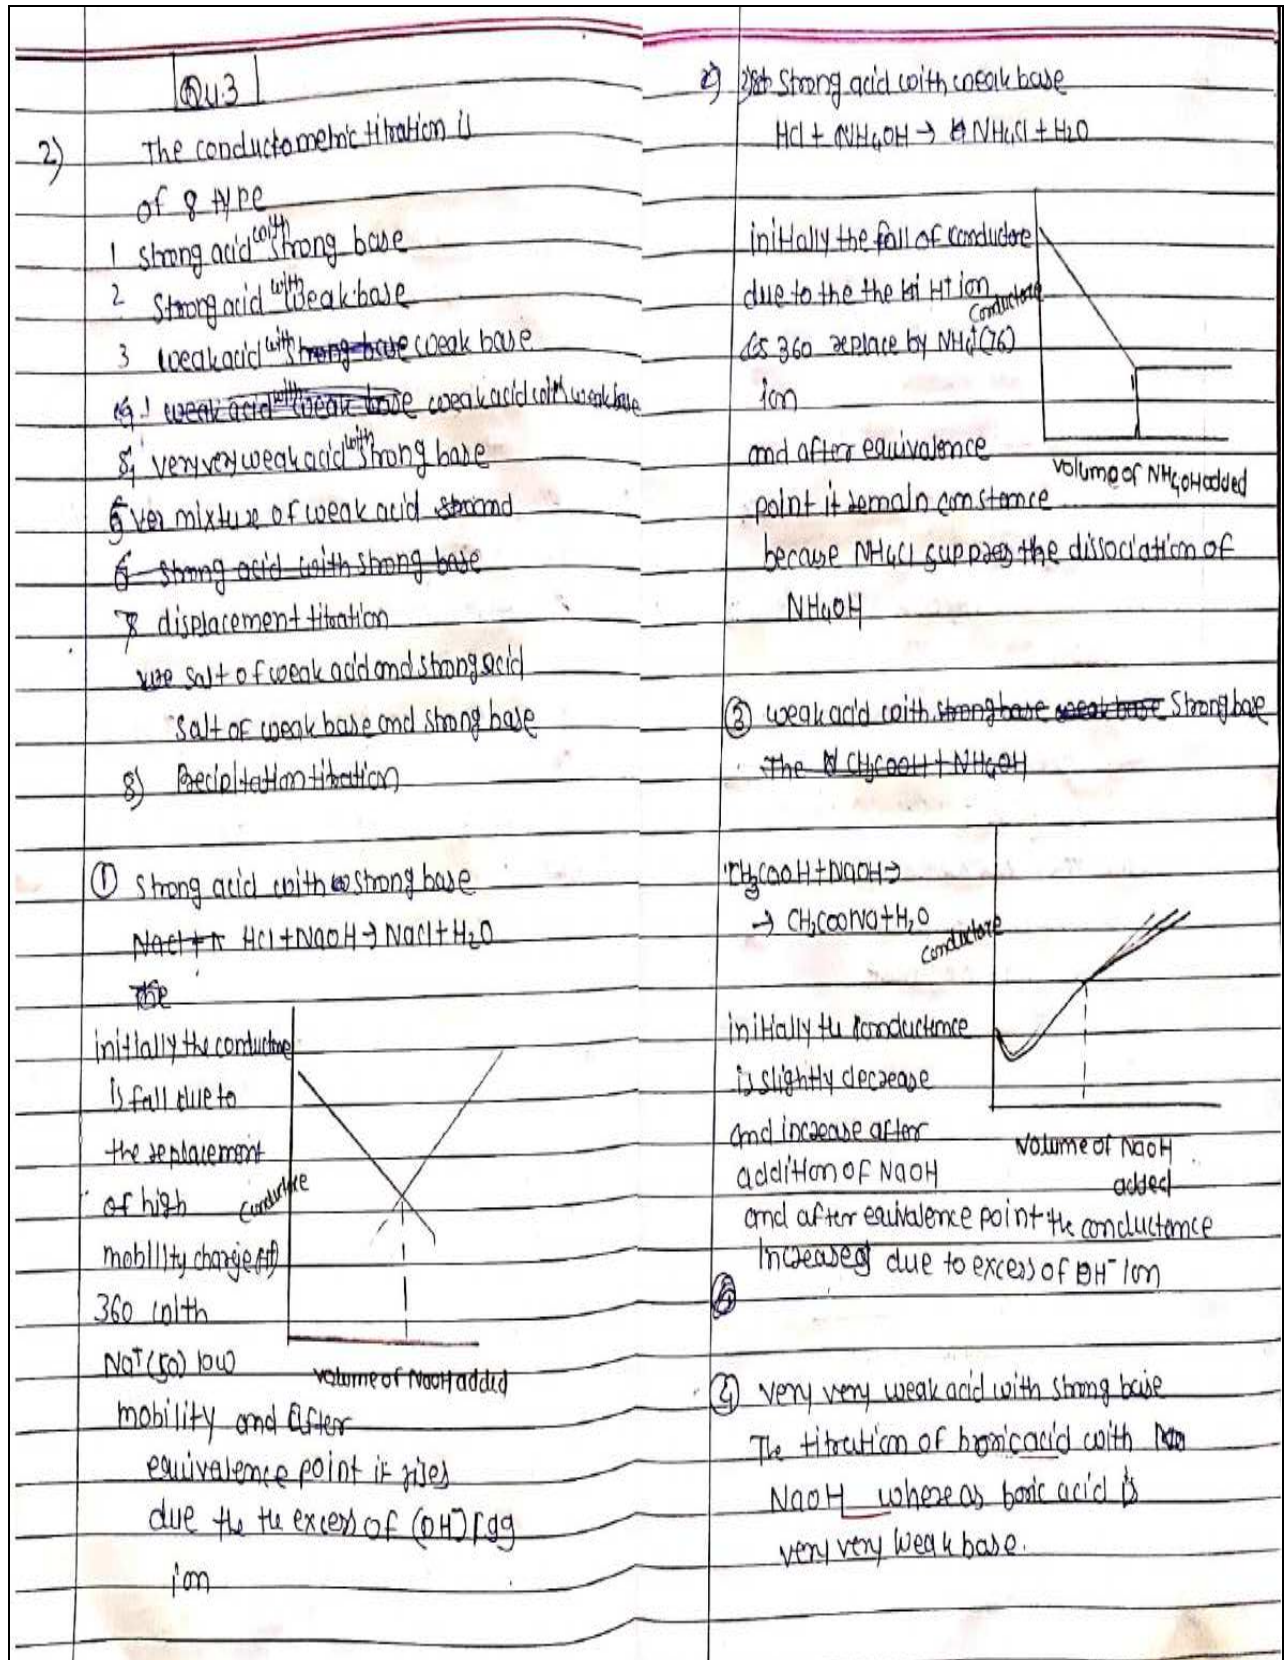 Qu.3
2) The conductometric titration is
of 8 type
1 strong acid with strong base
2 Strong acid with weak base
3 weak acid with strong base weak base
4 weak acid with weak base weak acid with weak base
5, very very weak acid with strong base
6 mixture of weak acid strond
6 strong acid with strong base
7 displacement titration
salt of weak acid and strong acid
Salt of weak base and strong base
8) Precipitation titration
① strong acid with strong base
NaCl + HCl + NaOH → NaCl + H2O
the
initially the conductore
is fall due to
the replacement
of high
Conductore
mobility charge (H)
360 with
Na+ (50) low
volume of NaOH added
mobility and after
equivalence point it rises
due the the excess of (OH) 199
ion
2) Strong acid with weak base
HCl + NH4OH → NH4Cl + H2O
initially the fall of conductore
due to the the H+ ion
Conductore
is 360 replace by NH4+ (76)
ion
and after equivalence
volume of NH4OH added
point it remain constance
because NH4Cl suppres the dissociation of
NH4OH
③ weak acid with strong base weak base Strong base
The CH3COOH + NH4OH
CH3COOH + NaOH →
→ CH3COONa + H2O
Conductore
initially the conductence
is slightly decrease
and increase after
volume of NaOH
added
addition of NaOH
and after equivalence point the conductence
increased due to excess of OH- ion
④ very very weak acid with strong base
The titration of boric acid with
NaOH whereas boric acid is
very very weak base.